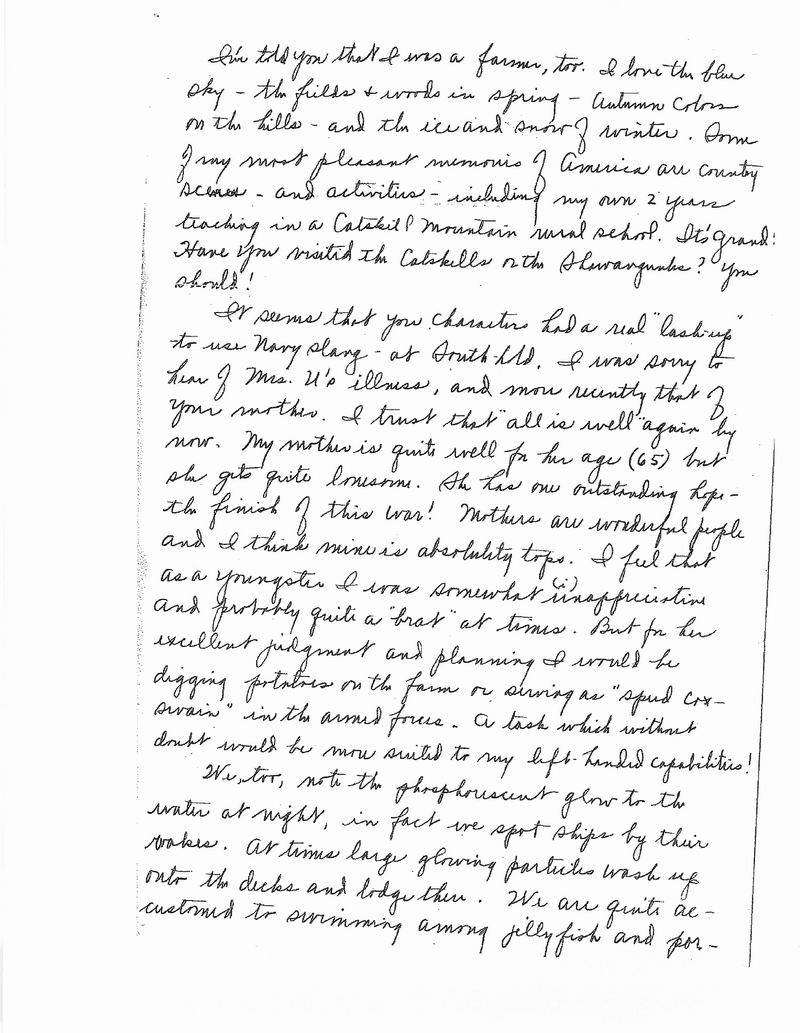 I've told you that I was a farmer, too. I love the blue
sky - the fields & woods in spring - Autumn Colors
on the hills - and the ice and snow of winter. Some
of my most pleasant memories of America are country
scenes - and activities - including my own 2 years
teaching in a Catskill Mountain rural school. It's grand!
Have you visited the Catskills or the Shawangunks? You
should!
It seems that you characters had a real "lash-up"
to use Navy slang - at South-hld. I was sorry to
hear of Mrs. U's illness, and more recently that of
your mother. I trust that "all is well" again by
now. My mother is quite well for her age (65) but
she gets quite lonesome. She has one outstanding hope-
the finish of this war! Mothers are wonderful people
and I think mine is absolutely tops. I feel that
as a youngster I was somewhat (i) unappreciative
and probably quite a "brat" at times. But for her
excellent judgment and planning I would be
digging potatoes on the farm or serving as "spud cox-
swain" in the armed forces. A task which without
doubt would be more suited to my left-handed capabilities!
We, too, note the phosphorescent glow to the
water at night, in fact we spot ships by their
wakes. At times large glowing particles wash up
onto the decks and lodge there. We are quite ac-
customed to swimming among jellyfish and por-